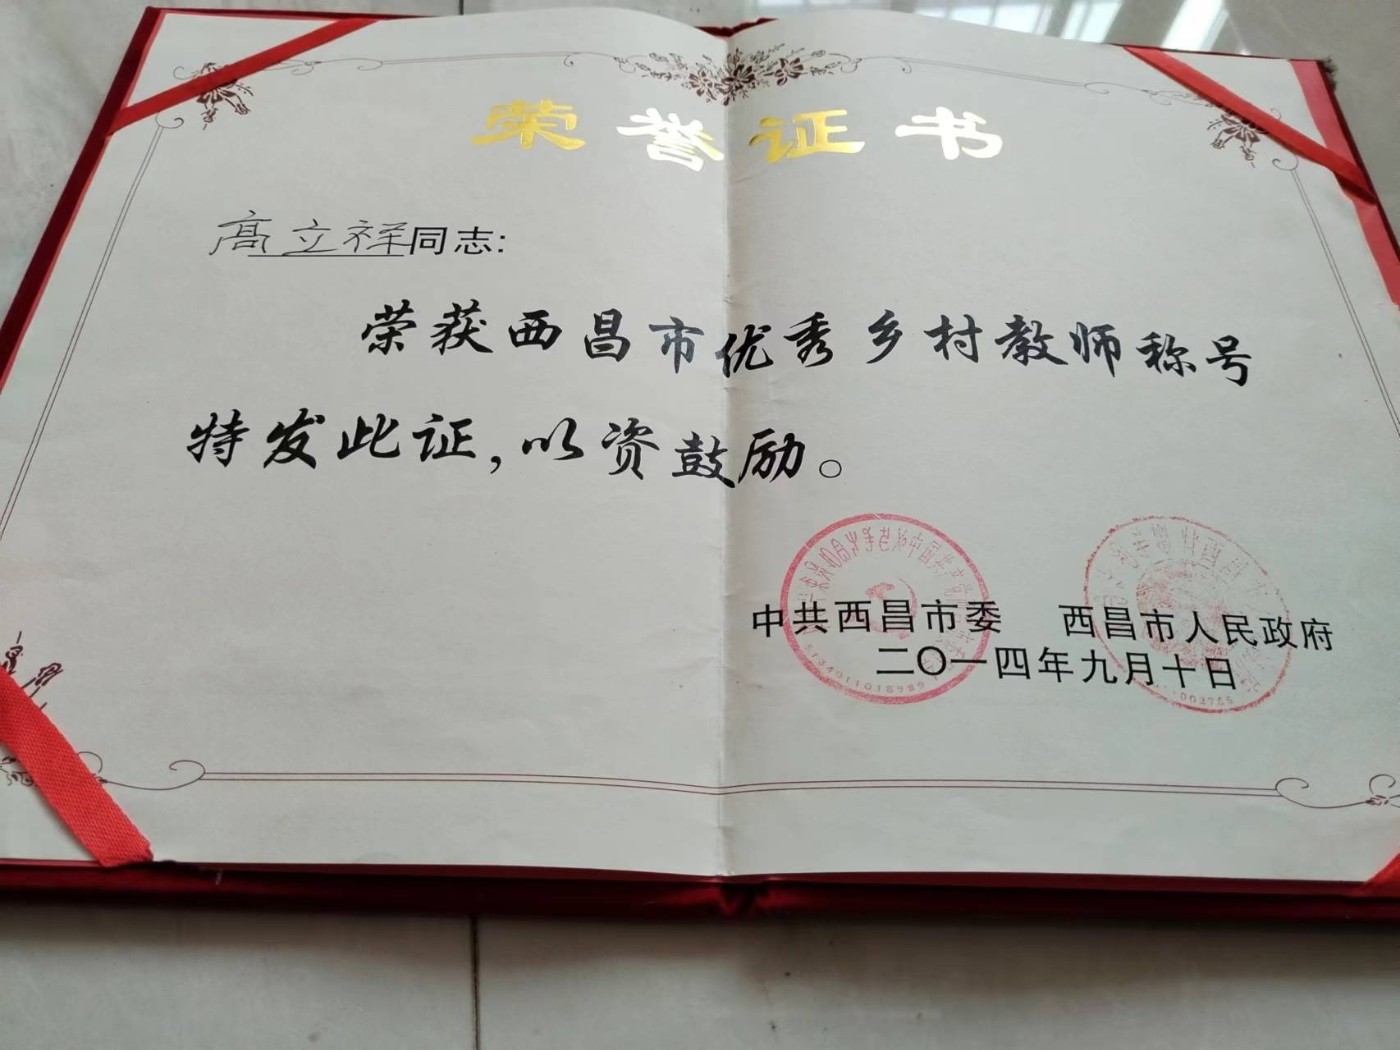 荣誉证书
高立祥同志:
荣获西昌市优秀乡村教师称号
特发此证,以资鼓励。
中共西昌市委 西昌市人民政府
二〇一四年九月十日